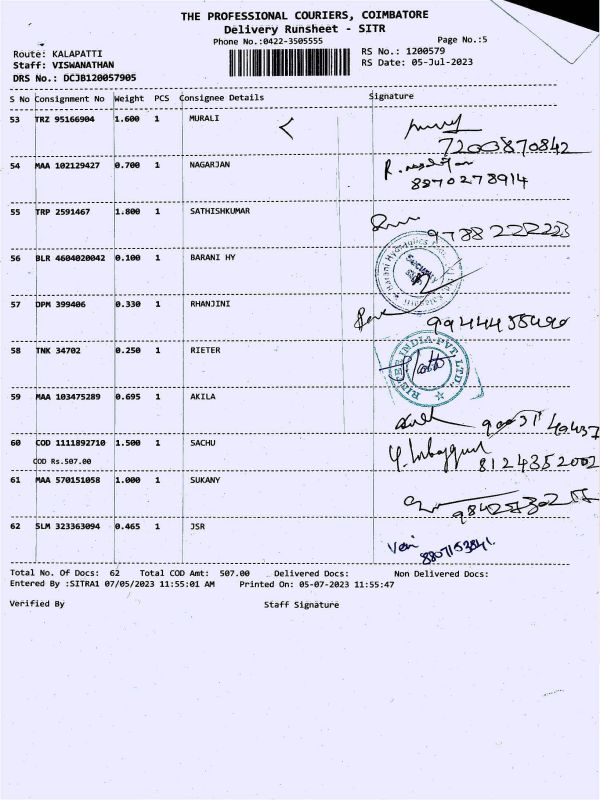 THE PROFESSIONAL COURIERS, COIMBATORE
Delivery Runsheet - SITR
Phone No.:0422-3505555 Page No.:5
Route: KALAPATTI RS No.: 1200579
Staff: VISWANATHAN RS Date: 05-Jul-2023
DRS No.: DCJB120057905
S No Consignment No Weight PCS Consignee Details Signature
53 TRZ 95166904 1.600 1 MURALI
7200870842
54 MAA 102129427 0.700 1 NAGARJAN
8870278914
55 TRP 2591467 1.800 1 SATHISHKUMAR
9788222223
56 BLR 4604020042 0.100 1 BARANI HY
Security
57 DPM 399406 0.330 1 RHANJINI
58 TNK 34702 0.250 1 RIETER
RIETER INDIA PVT. LTD.
59 MAA 103475289 0.695 1 AKILA
60 COD 1111892710 1.500 1 SACHU
COD Rs.507.00
8124352002
61 MAA 570151058 1.000 1 SUKANY
62 SLM 323363094 0.465 1 JSR
8807153841
Total No. Of Docs: 62 Total COD Amt: 507.00 Delivered Docs: Non Delivered Docs:
Entered By :SITRA1 07/05/2023 11:55:01 AM Printed On: 05-07-2023 11:55:47
Verified By Staff Signature